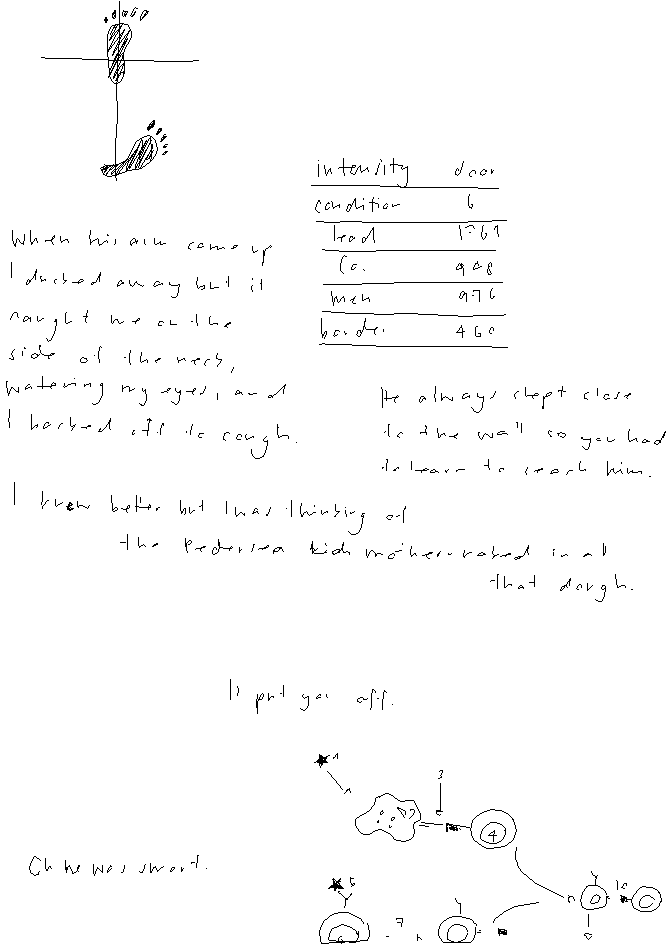 intensity door
condition 6
lead
Co. 948
men 976
border 460
When his arm came up
I ducked away but it
caught me on the
side of the neck,
watering my eyes, and
I backed off to cough.
He always slept close
to the wall so you had
to learn to reach him.
I knew better but I was thinking of
the Pedersen kid mother-naked in all
that dough.
It put you off.
1
3
4
Oh he was smart.
5
7
10